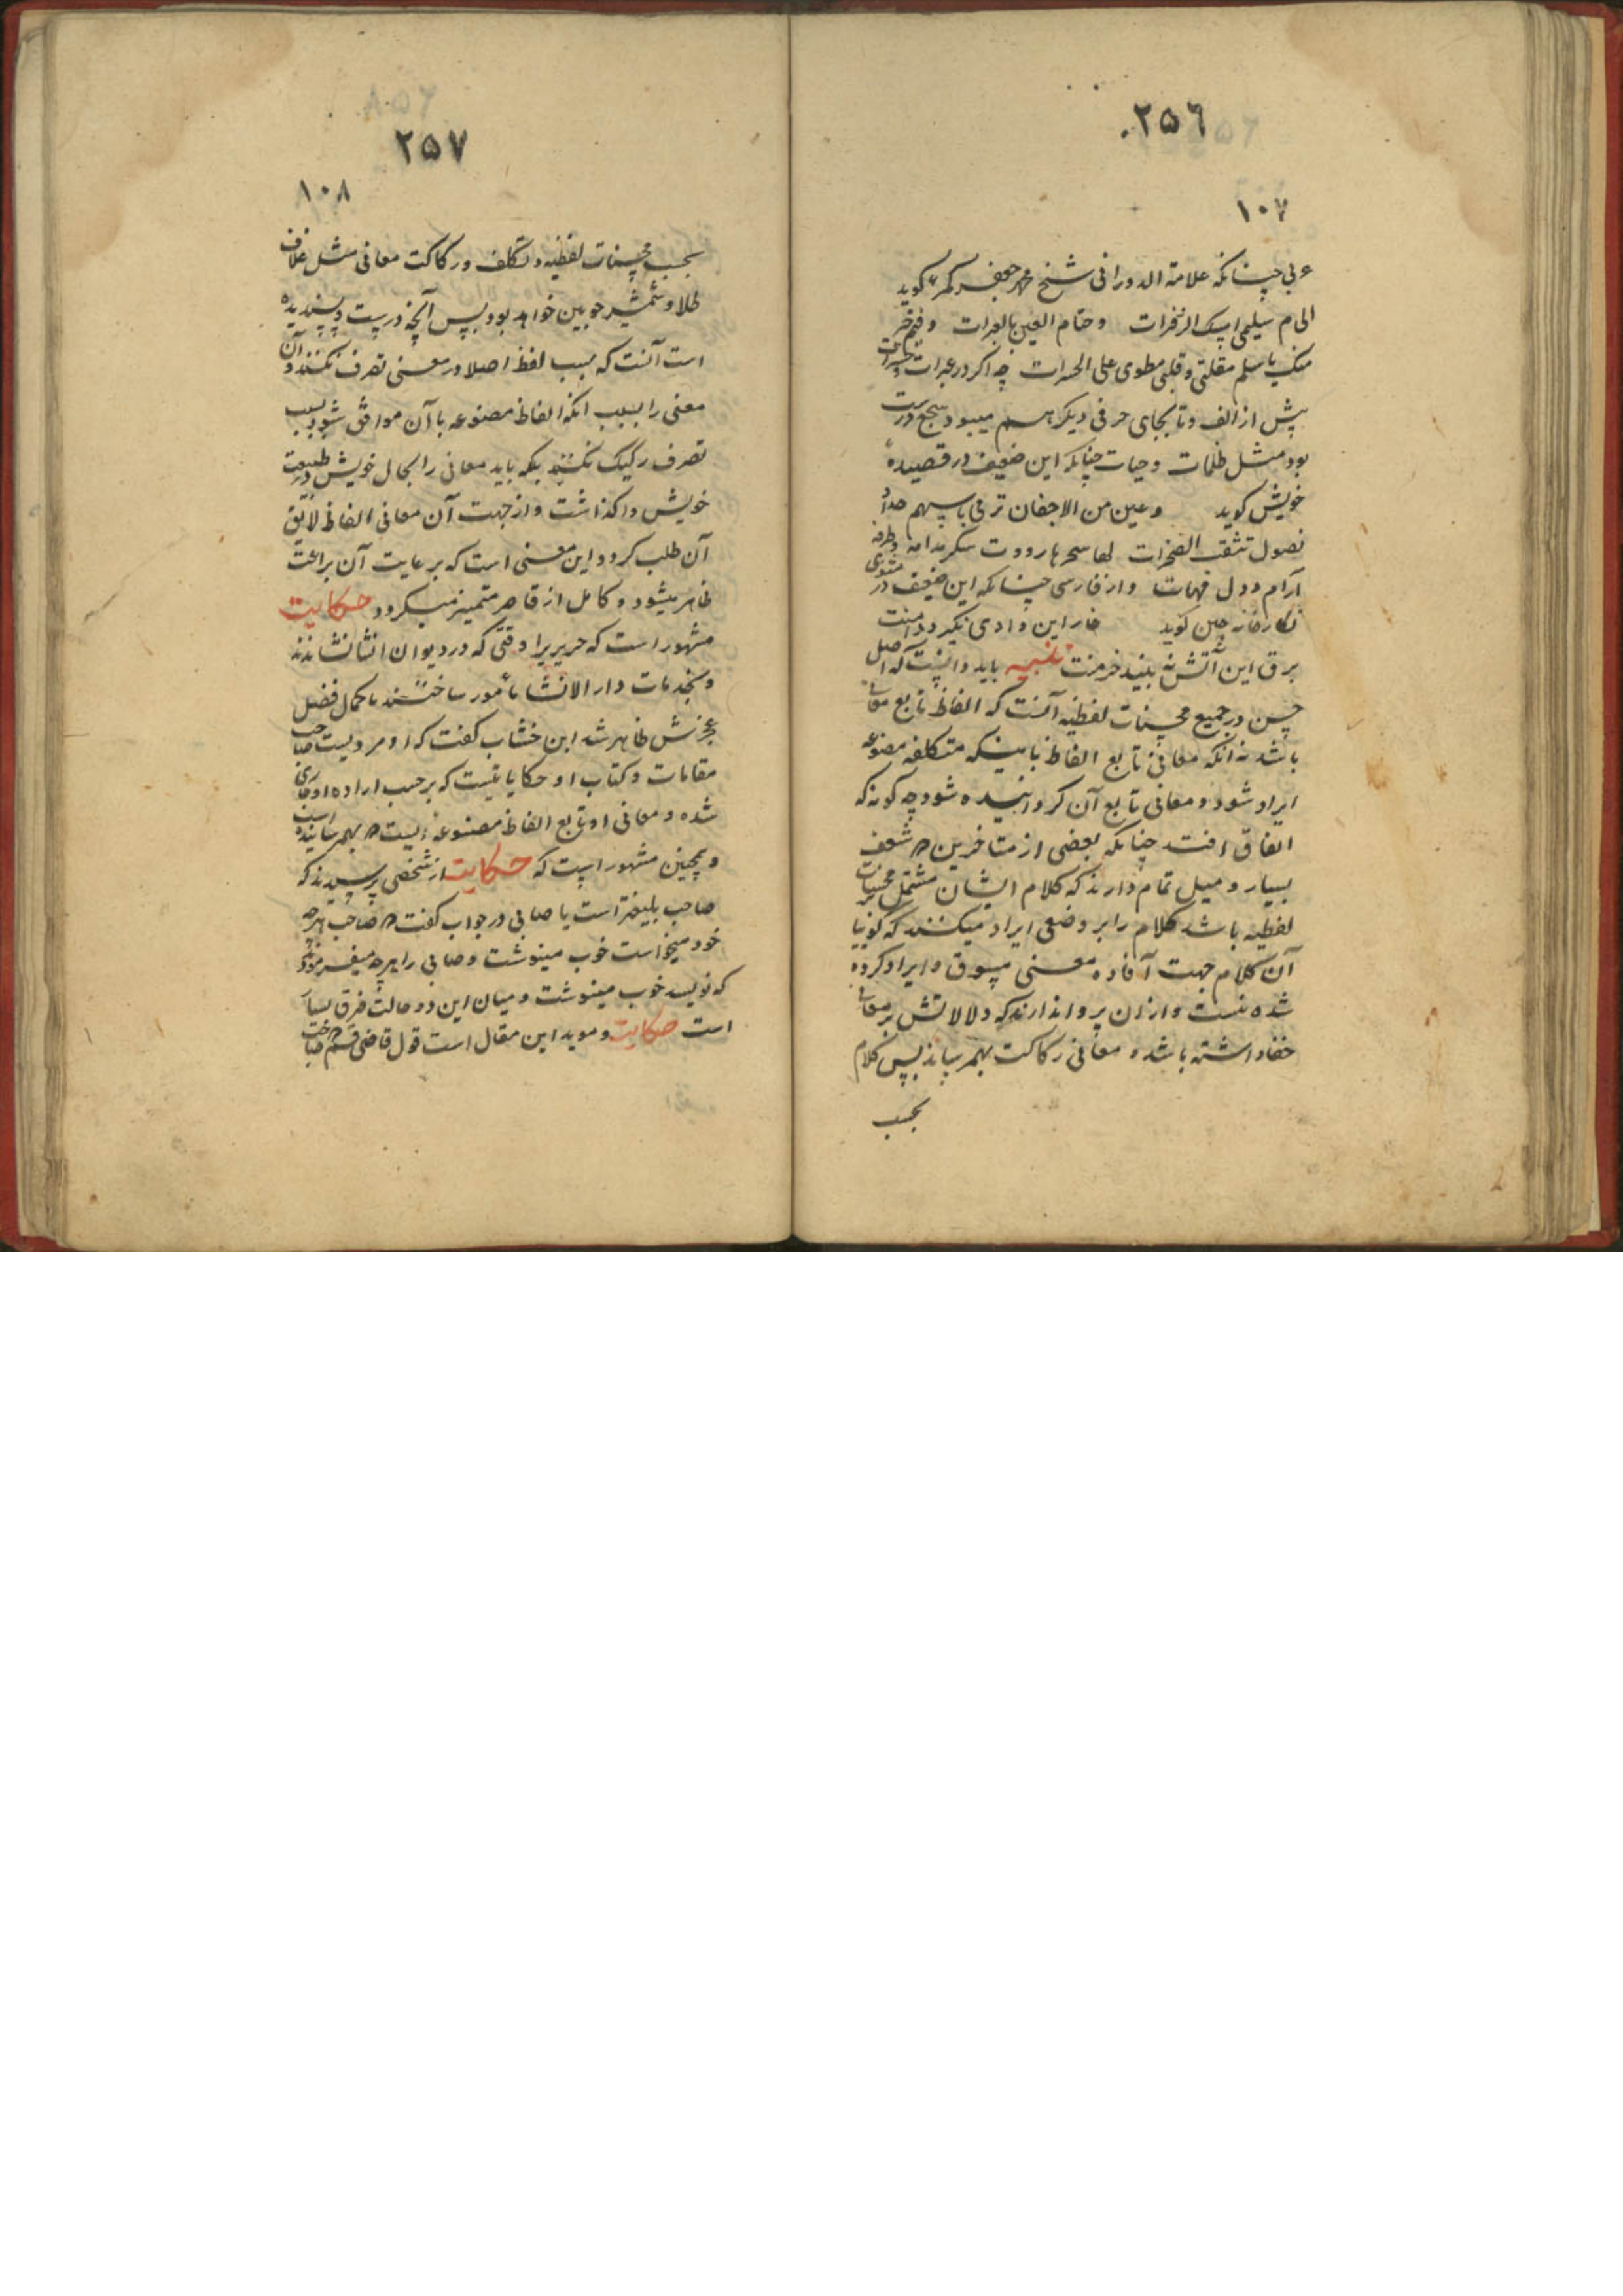 ۲۵۶
۱۰۷
عربی چنانکه علامة الدورانی شیخ محمد جعفر کمره گوید
الی م سلیمی اسک الزفرات وحتام العین بالعبرات
منک یا سلم مقلتی و قلبی مطوی علی الحسرات چه اگر در عبرات و حسرات
پیش از الف و تا بجای حرفی دیگر هم میبود سجع درست
بود مثل ظلمات و حیات چنانکه این ضعیف در قصیده
خویش کوید وعین من الاجفان ترنی باسهم حداد
نصول تثقب الصخرات لها سحر هاروت سکر مدامه و طرفه
آرام ودل مهات و از فارسی چنانکه این ضعیف در مثنوی
نگارخانه چین کوید خار این وادی نگیرد دامنت
برق این آتش نه بیند خرمنت تنبیه باید دانست که اصل
حسن در جمیع محسنات لفظیه آنست که الفاظ تابع معانی
باشد نه آنکه معانی تابع الفاظ باینکه متکلفه مصنوعه
ایراد شود و معانی تابع آن گردانیده شود چه گونه که
اتفاق افتد چنانکه بعضی از متاخرین که شعف
بسیار و میل تمام دارند که کلام ایشان مشتمل بر محسنات
لفظیه باشد کلام را بر وضعی ایراد میکنند که گوییا
آن کلام جهت آفاده معنی مسوق و ایراد کرده
شده نیست و از ان پروا ندارند که دلالاتش بر معانی
خفا داشته باشد و معانی رکاکت بهم رساند پس کلام
بحسب
۲۵۷
۱۰۸
بحسب محسنات لفظیه و تکلف و رکاکت معانی مثل غلاف
طلا و شمشیر چوبین خواهد بود پس آنچه درست و پسندیده
است آنست که بسبب لفظ اصلا در معنی تصرف نکنند و آن
معنی را بسبب آنکه الفاظ مصنوعه با آن موافق شود بسبب
تصرف رکیک نکنند بلکه باید معانی را بحال خویش و طبیعت
خویش واگذاشت و از جهت آن معانی الفاظ لایق
آن طلب کرد و این معنی است که برعایت آن براعت
ظاهر میشود و کامل از قاصر متمیز میگردد حکایت
مشهور است که حریریرا وقتی که در دیوان انشا نشاندند
و بخدمات دار الانشا مأمور ساختند با کمال فضل
عجزش ظاهر شد ابن خشاب گفت که او مردیست صاحب
مقامات و کتاب او حکایاتیست که بر حسب اراده او جاری
شده و معانی او تابع الفاظ مصنوعه ایست که بهم رسانیده است
و همچنین مشهور است که حکایت از شخصی پرسیدند که
صاحب بلیغتر است یا صابی در جواب گفت که صاحب هرچه
خود میخواست خوب مینوشت و صابی را هرچه میفرمودند
که نویسد خوب مینوشت و میان این دو حالت فرق بسیار
است حکایت و موید این مقال است قول قاضی قم که صاحب